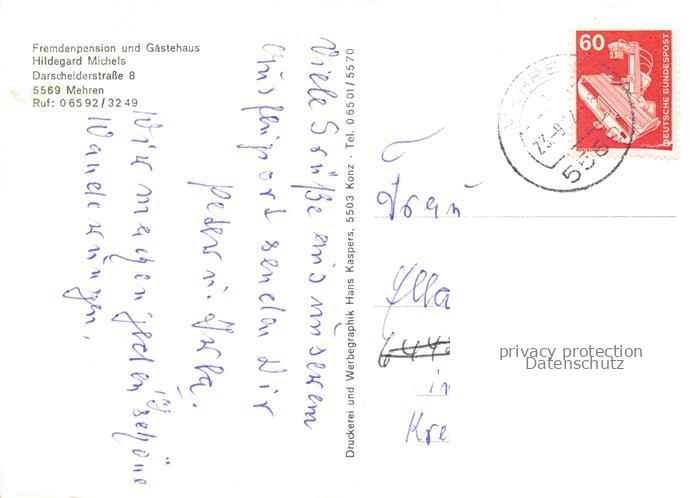 Fremdenpension und Gästehaus
Hildegard Michels
Darscheiderstraße 8
5569 Mehren
Ruf: 0 65 92 / 32 49
Viele Grüße aus unserem
Ausflugsort senden Dir
Peter u.
Wir machen jeden Tag schöne
Wanderungen.
Druckerei und Werbegraphik Hans Kaspers, 5503 Konz - Tel. 0 65 01 / 55 70
60
DEUTSCHE BUNDESPOST
556
Frau
Ella
in
Kre
privacy protection
Datenschutz